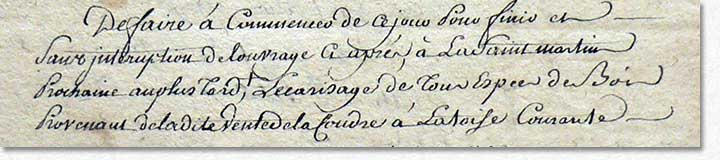 De faire à Commencer de ce jour pour finir et
sans interuption de louvrage Ci après, à La Saint martin
Prochaine au plus Tard, Lecarisage de Tous Espece de Bois
Provenant de ladite Vente de la Coudre à La toise Courante